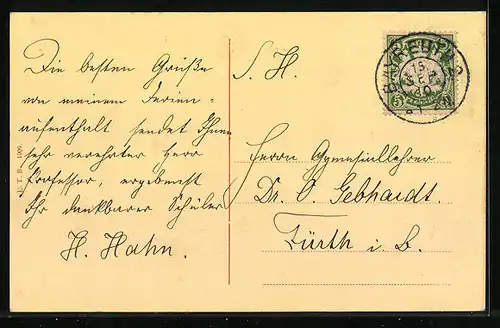 Die besten Grüße
von meinem Ferien-
aufenthalt sendet Ihnen
sehr verehrter Herr
Professor, ergebenst
Ihr dankbarer Schüler
H. Hahn.
S. H.
Herrn Gymnasiallehrer
Dr. O. Gebhardt.
Fürth i. B.
BAYREUTH 2
5